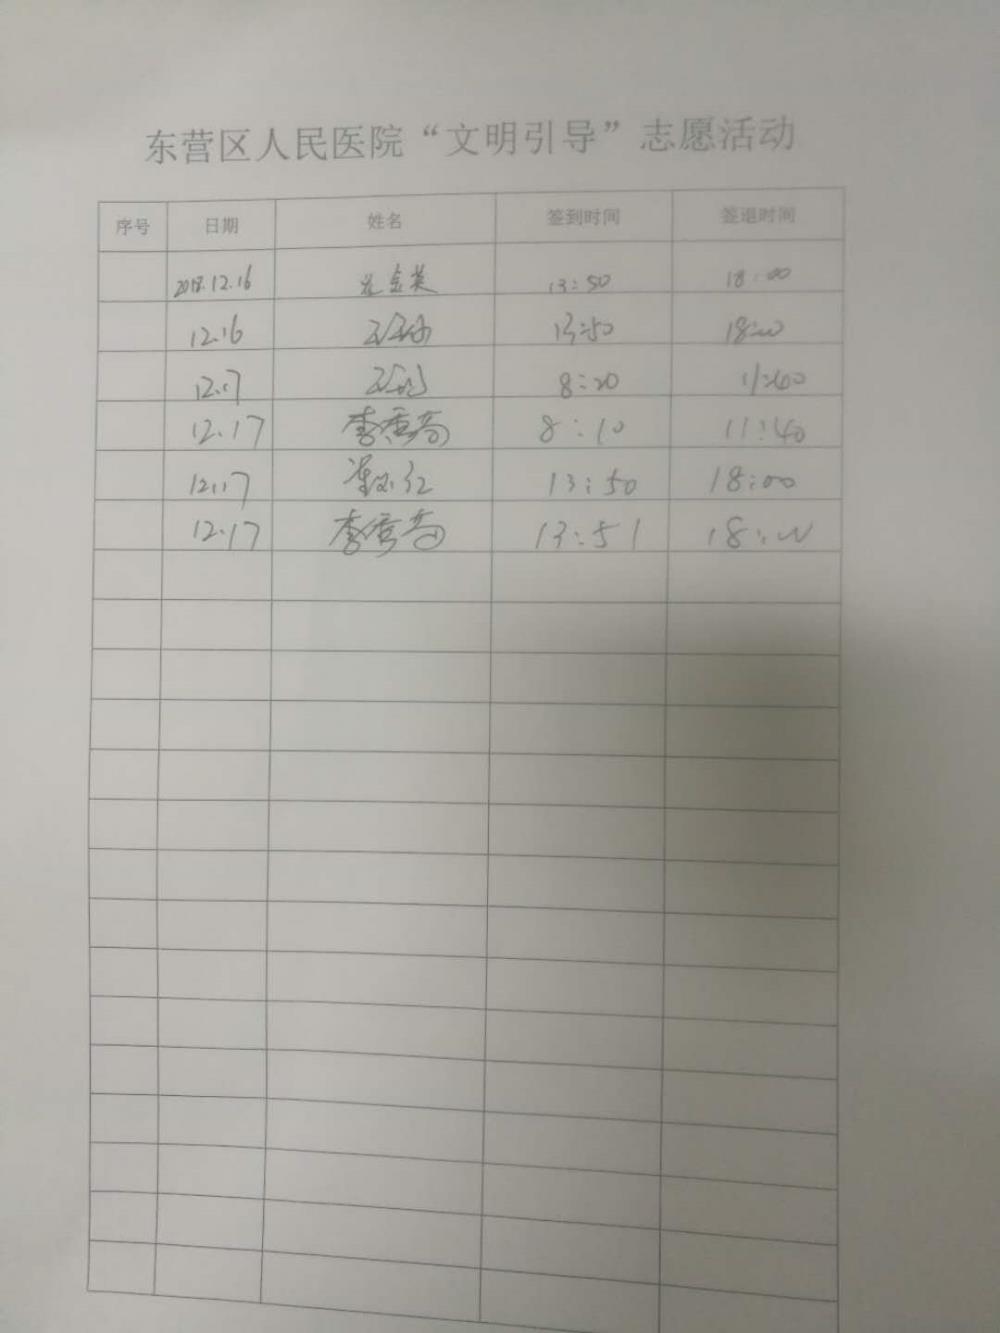 东营区人民医院“文明引导”志愿活动
序号 日期 姓名 签到时间 签退时间
2018.12.16 13:50 18:00
12.16 13:50 18:00
12.17 8:20 11:40
12.17 李秀高 8:10 11:40
12.17 13:50 18:00
12.17 李秀高 13:51 18:00